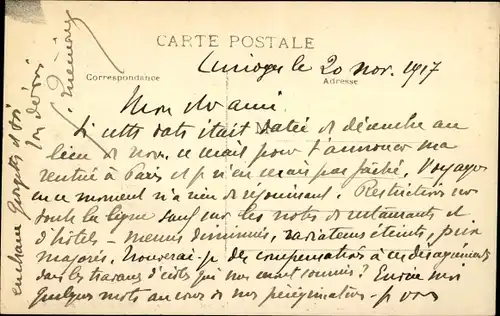 CARTE POSTALE
Correspondance
Adresse
Limoges le 20 nov. 1917
Mon cher ami
Si cette carte était datée de décembre au
lieu de nov. ce serait pour t'annoncer ma
rentrée à Paris et je n'en serais pas fâché. Voyager
en ce moment n'a rien de réjouissant. Restrictions sur
toute la ligne sauf sur les notes de restaurants et
d'hôtels – menus diminués, radiateurs éteints, prix
majorés. Trouverai-je des compensations à ces désagréments
dans les travaux d'écits qui me sont soumis? Envoie moi
quelques mots au cours de mes pérégrinations – je vous
embrasse Georgette et toi